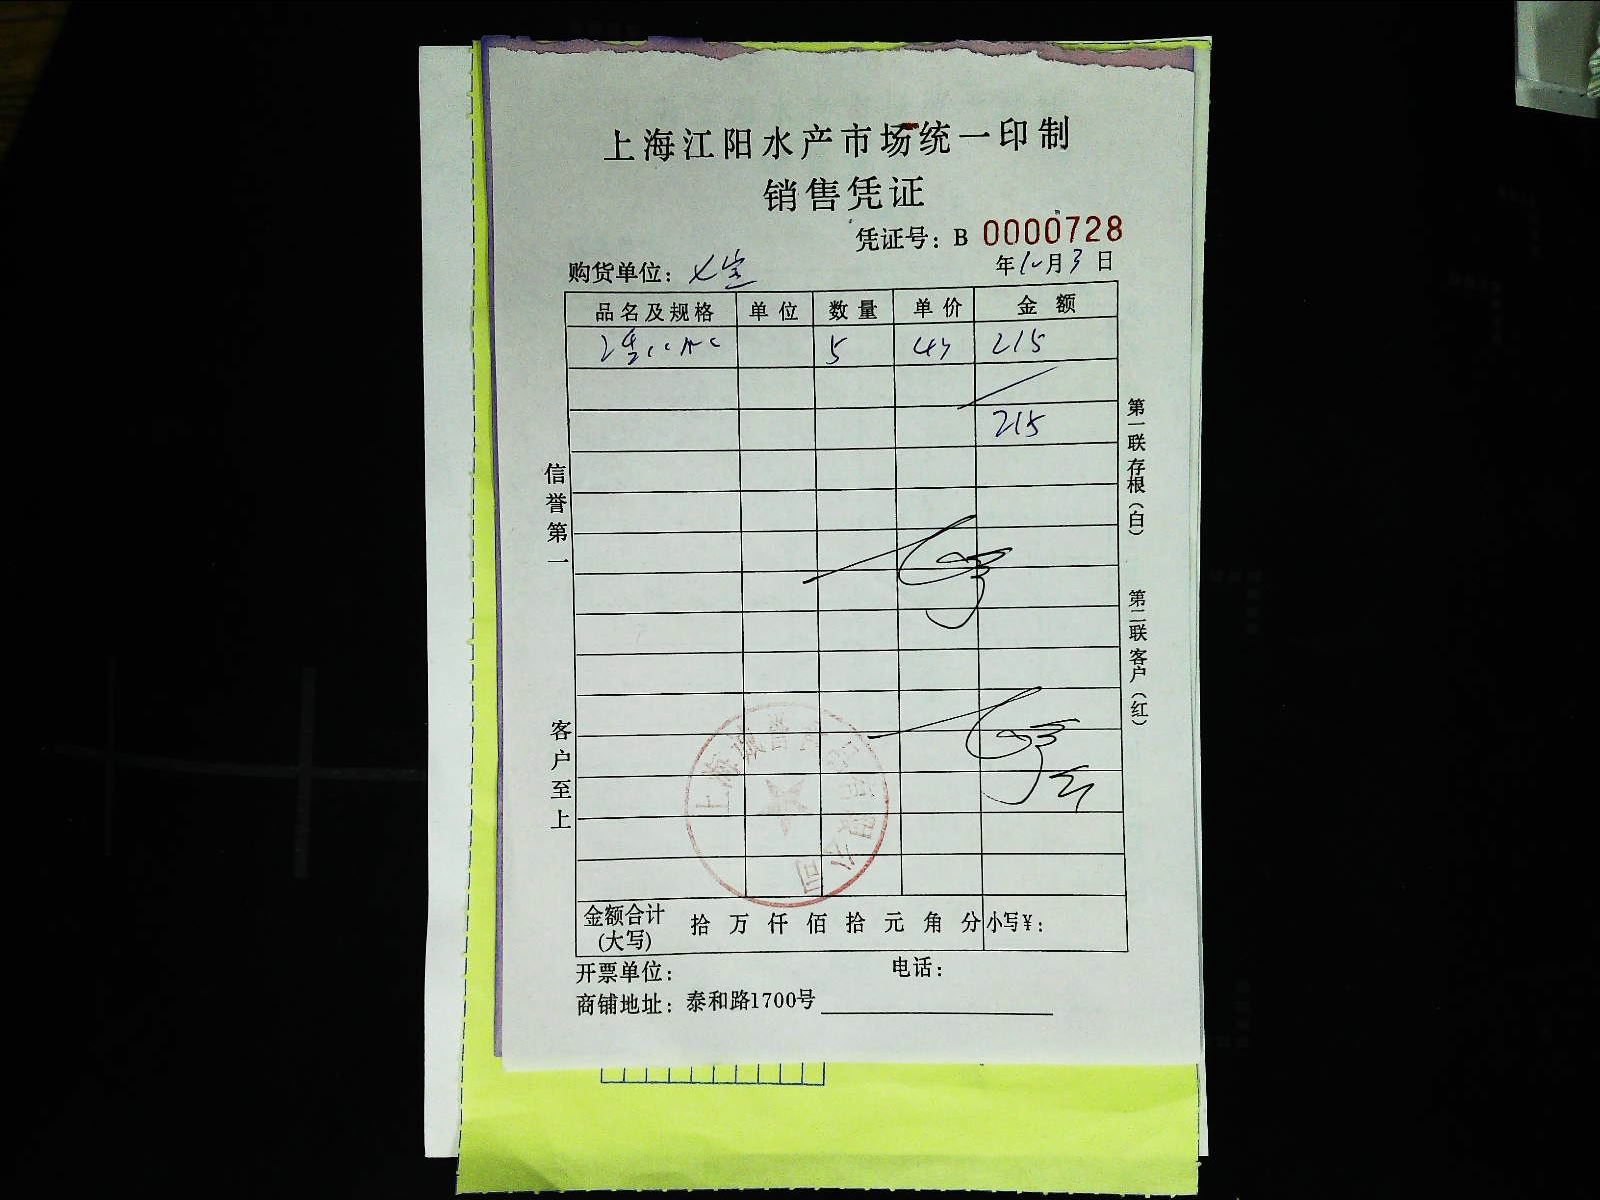 上海江阳水产市场统一印制
销售凭证
凭证号：B 0000728
购货单位： 年12月3日
品名及规格 单位 数量 单价 金额
5 43 215
215
信誉第一
客户至上
第一联存根（白）
第二联客户（红）
金额合计（大写） 拾万仟佰拾元角分 小写¥：
开票单位： 电话：
商铺地址：泰和路1700号